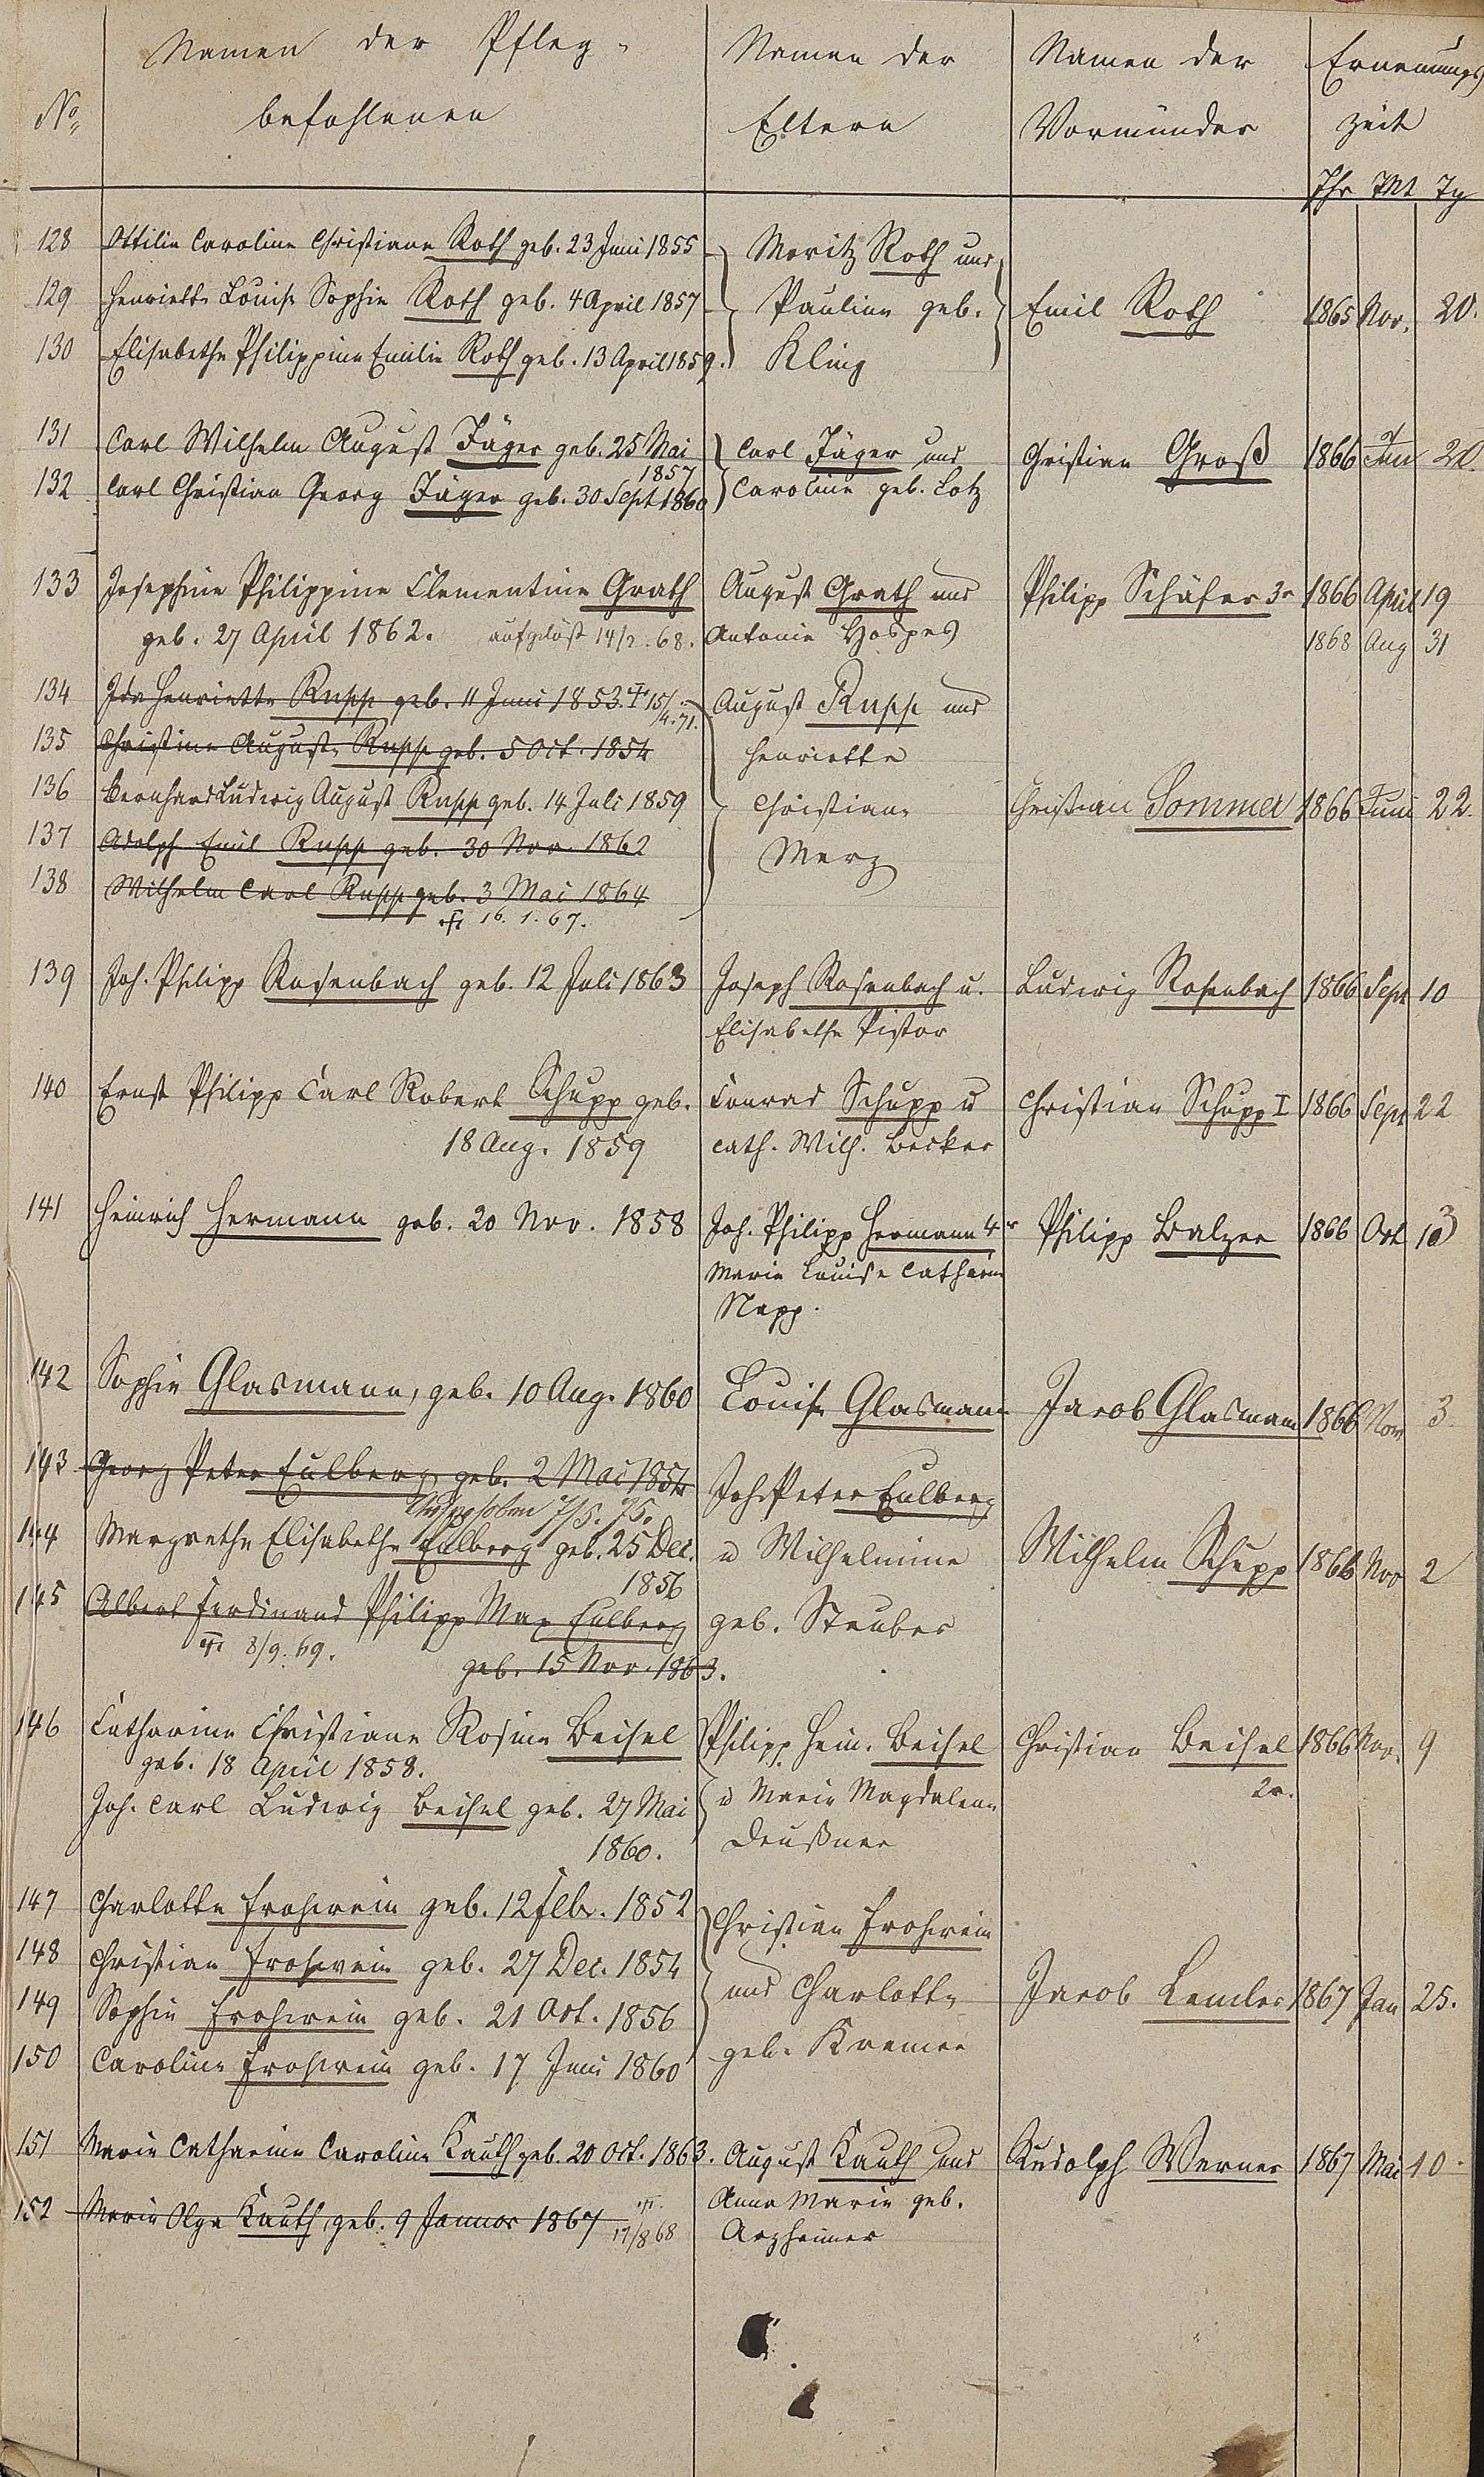 Namen der Pfleg- Namen der Namen der Ernennungs
No befohlenen Eltern Vormünder zeit
Jhr Mt Tg
128 Ottilie Caroline Christiane Roth geb. 23 Juni 1855 Moritz Roth und
129 Henriette Louise Sophie Roth geb. 4 April 1857 Pauline geb. Emil Roth 1865 Nov. 20.
130 Elisabethe Philippine Emilie Roth geb. 13 April 1859. Kling
131 Carl Wilhelm August Jäger geb. 25 Mai Carl Jäger und Christian Groß 1866 20.
1857
132 Carl Christian Georg Jäger geb. 30 Sept 1860 Caroline geb. Lotz
133 Josephine Philippine Clementine Grath August Grath und Philipp Schäfer 3r 1866 April 19
geb. 27 April 1862. aufgelöst 14/2.68. Antonie Hospes 1868 Aug 31
134 Ida Henriette Rupp geb. 11 Juni 1853. 15/4.71. August Rupp und
135 Christine Auguste Rupp geb. 5 Oct. 1854 Henriette
136 Bernhard Ludwig August Rupp geb. 14 Juli 1859 Christiane Christian Sommer 1866 Juni 22.
137 Adolph Emil Rupp geb. 30 Nov. 1862 Merz
138 Wilhelm Carl Rupp geb. 3 Mai 1864
16. 1. 67.
139 Joh. Philipp Rosenbach geb. 12 Juli 1863 Joseph Rosenbach u. Ludwig Rosenbach 1866 Sept 10
Elisabethe Pistor
140 Ernst Philipp Carl Robert Schupp geb. Conrad Schupp u Christian Schupp I 1866 Sept 22
18 Aug. 1859 Cath. Wilh. Becker
141 Heinrich Hermann geb. 20 Nov. 1858 Joh. Philipp Hermann 4r Philipp Balzer 1866 Oct
Marie Louise Catharine
Napp.
142 Sophie Glasmann, geb. 10 Aug. 1860 Louise Glasmann Jacob Glasmann 1866 Nov 3.
143 Georg Peter Eulberg geb. 2 Mai 1854 Joh. Peter Eulberg
7/5. 75.
144 Margrethe Elisabethe Eulberg geb. 25 Dec. u Wilhelmine Wilhelm Schupp 1866 Nov 2
1856
145 Albert Ferdinand Philipp Max Eulberg geb. Steuber
8/9. 69. geb. 15 Nov. 1863.
146 Catharine Christiane Rosine Beisel Philipp Hein. Beisel Christian Beisel 1866 Nov. 9
geb. 18 April 1858. 2r.
Joh. Carl Ludwig Beisel geb. 27 Mai u Marie Magdalene
1860. Deußner
147 Charlotte Frohwein geb. 12 Feb. 1852 Christian Frohwein
148 Christian Frohwein geb. 27 Dec. 1854
149 Sophie Frohwein geb. 21 Oct. 1856 und Charlotte Jacob Lemler 1867 Jan 25.
150 Caroline Frohwein geb. 17 Juni 1860 geb. Kramer
151 Marie Catharine Caroline Kauth geb. 20 Oct. 1863. August Kauth und Rudolph Werner 1867 Mai 10.
152 Marie Olga Kauth, geb. 9 Januar 1867 17/8 68 Anna Marie geb.
Arzheimer